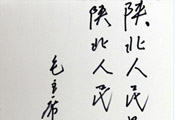 陕北人民
陕北人民
毛主席